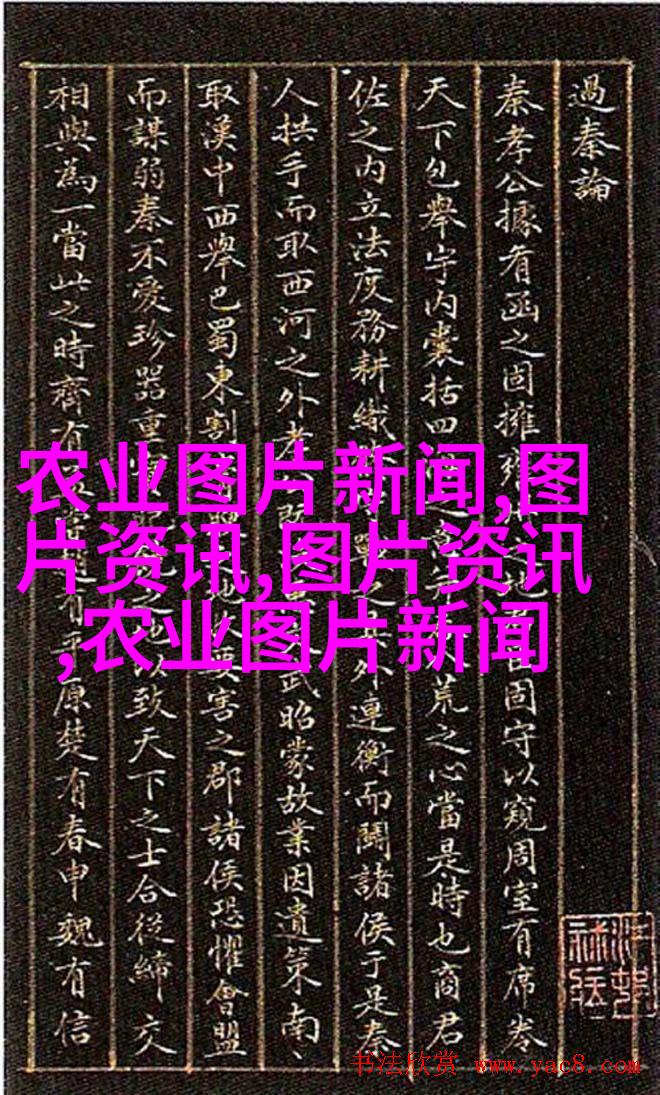 過秦論
秦孝公據有函之固擁雍地固守以窺周室有席卷
天下包舉宇内囊括四之意荒之心當是時也商君
佐之内立法度務耕織戰之外連衡而鬪諸侯于是秦
人拱手而取西河之外孝武昭蒙故業因遺策南
取漢中西舉巴蜀東割地要害之郡諸侯恐懼會盟
而謀弱秦不愛珍器重寶之地以致天下之士合從締交
相與為一當此之時齊有有平原楚有春申魏有信
农业图片新闻,图
片资讯,图片资讯
,农业图片新闻
书法欣赏 www.yac8.com